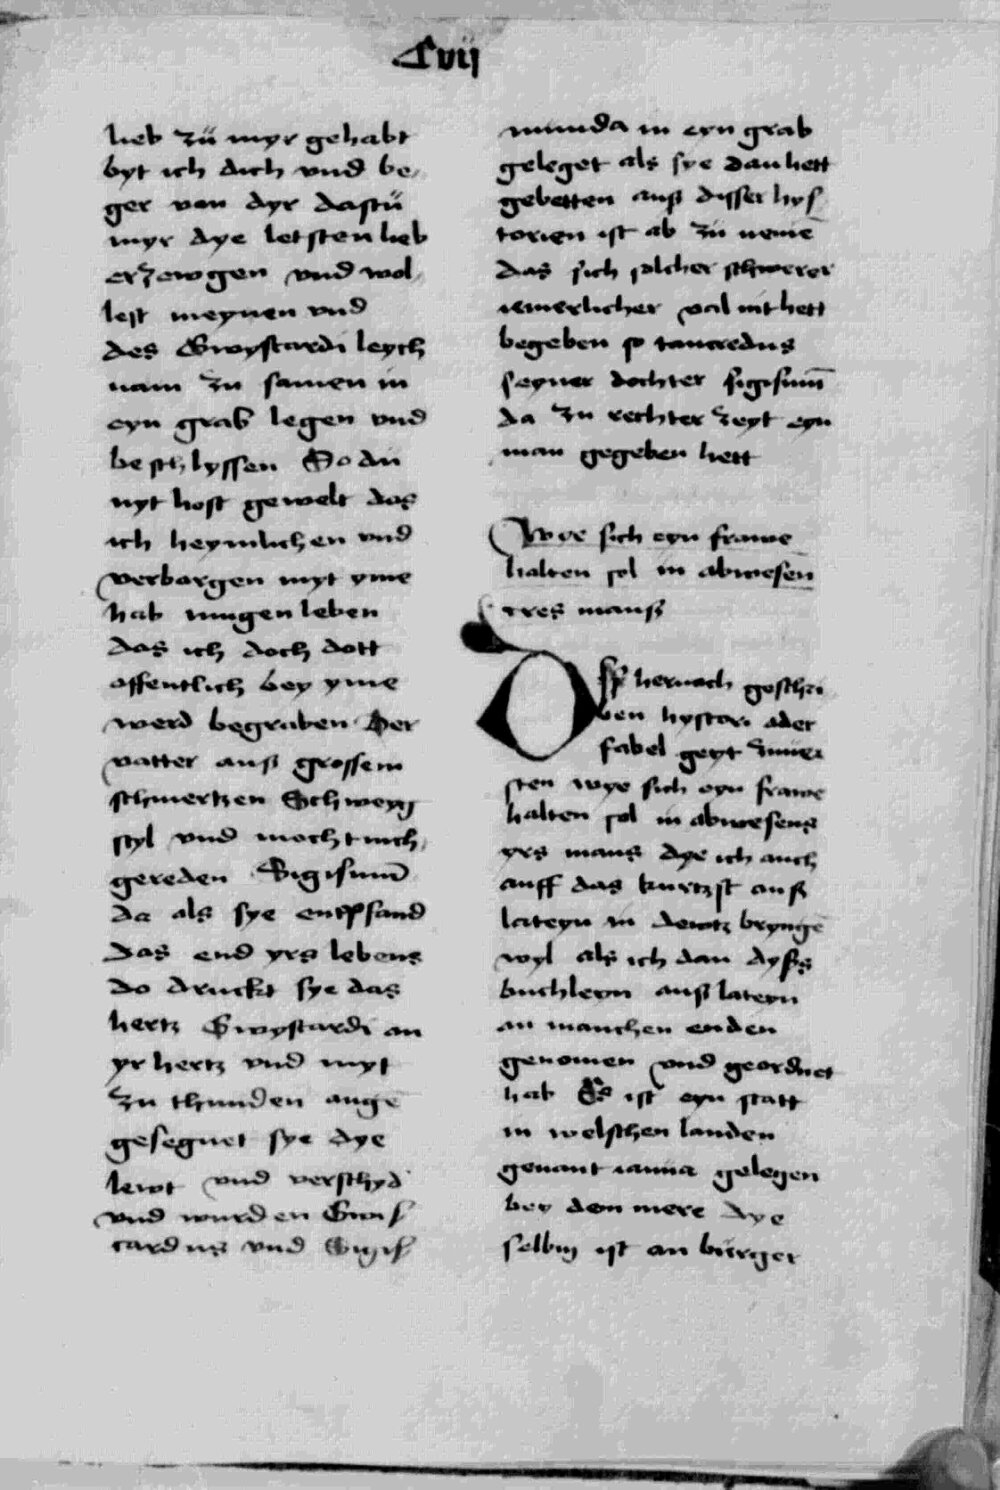 Cvij
lieb zü myr gehabt
byt ich dich vnd be,
ger von dyr dastü
myr dye letsten lieb
erzewgen vnd wol,
lest meynen vnd
des Gwystardi leych
nam zu samen in
eyn grab legen vnd
beschlyssen So du
nyt host gewelt das
ich heymlichen vnd
verborgen myt yme
hab mugen leben
das ich doch dott
offentlich bey yme
werd begraben Der
vatter auß grossem
schmertzen Schweyg
styl vnd mocht nich,
gereden Sigisum̄
da als sye entpfand
das end yrs lebens
do druckt sye das
hertz Gwystardi an
yr hertz vnd myt
zu thunden auge
gesegnet sye dye
lewt vnd verschyd
vnd wurden Gwis
cardus vnd Sigis
munda in eyn grab
geleget als sye dan hett
gebetten auß disser hys
torien ist ab zü neme̅
das sich solcher schwerer
iemerlicher val nit hett
begeben so tancredus
seyner dochter sigisum̄
da zu rechter zeyt eyn
man gegeben hett
Wye sich eyn frawe
halten sol in abwesen
yres manß
Dysse hernach geschri
ben hystori ader
fabel geyt zmuer
sten wye sich eyn frawe
halten sol in abwesens
yrs mans dye ich auch
auff das kurtzst auß
lateyn in dewtz brynge̅
wyl als ich dan dyßs
buchleyn auß lateyn
an manchen enden
genomen vnd geordnet
hab Es ist eyn statt
in welschen landen
genant ianua gelegen
bey dem mere dye
selbig ist an bürger